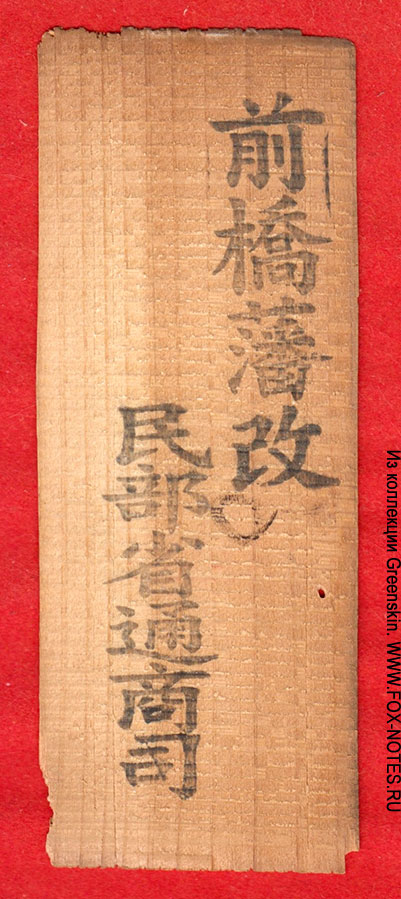 前橋藩改
民部省通商司
Из коллекции Greenskin. WWW.FOX-NOTES.RU